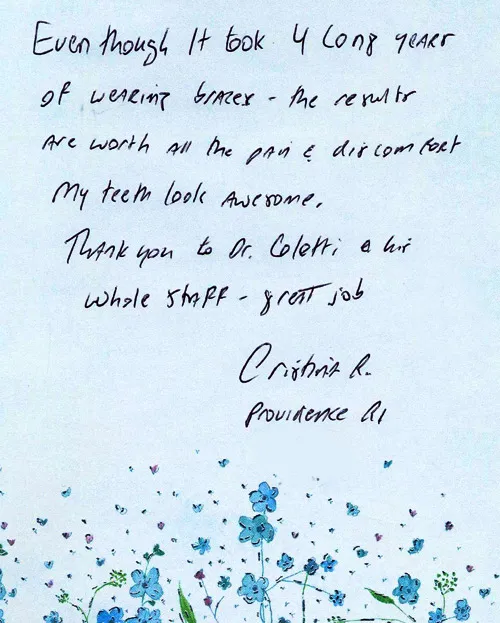 Even though It took 4 Long years
of wearing braces - the results
Are worth All the pain & discomfort
My teeth look Awesome.
Thank you to Dr. Coletti & his
whole staff - great job
Cristina R.
Providence RI